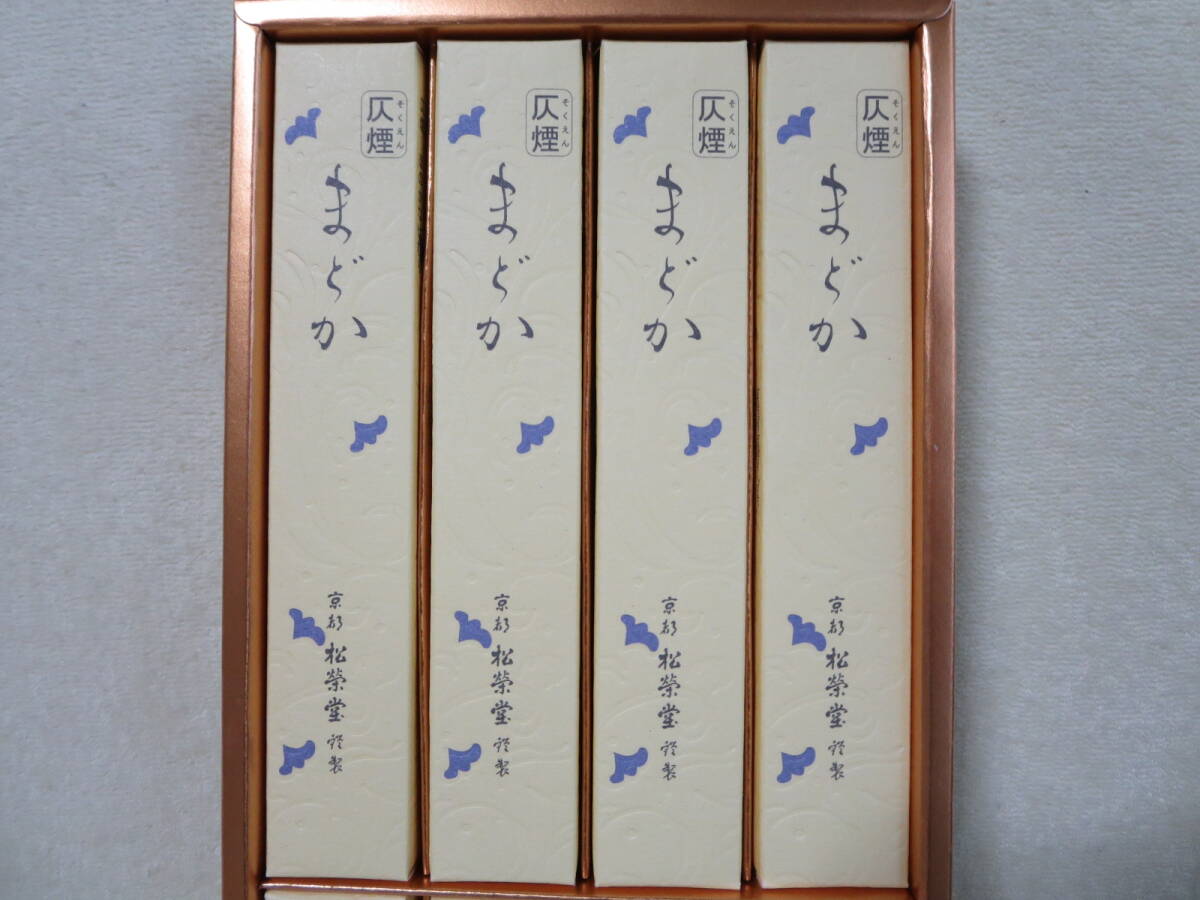 仄煙
そくえん
まどか
京都 松榮堂 謹製
仄煙
そくえん
まどか
京都 松榮堂 謹製
仄煙
そくえん
まどか
京都 松榮堂 謹製
仄煙
そくえん
まどか
京都 松榮堂 謹製